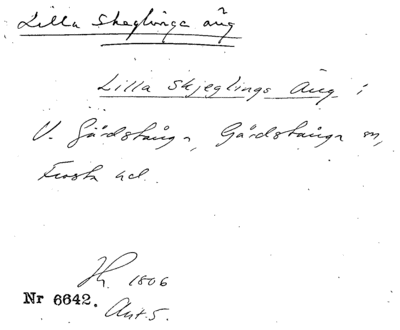 Lilla Skeglinga äng
Lilla Skjeglings Äng i
V. Gårdstånga, Gårdstånga sn,
Frosta hd.
1806
Nr 6642.
Akt 5.